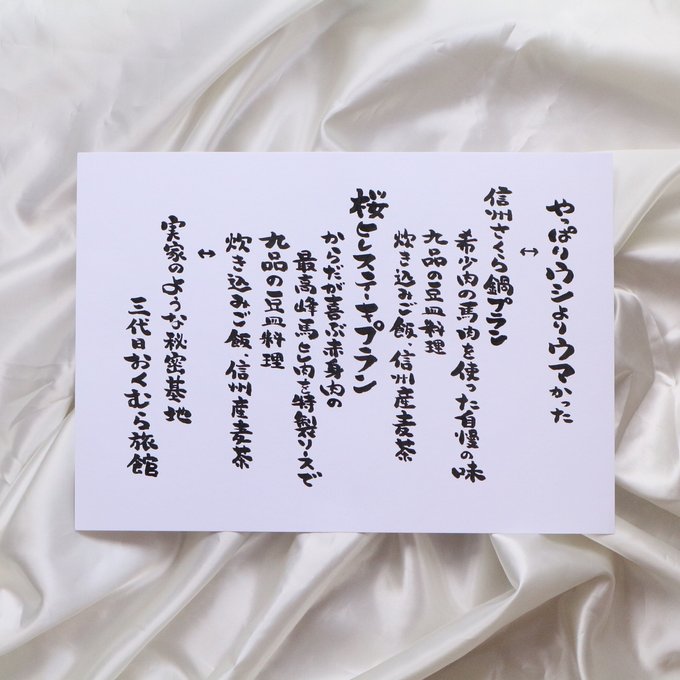 やっぱりウシよりウマかった
↔
信州さくら鍋プラン
希少肉の馬肉を使った自慢の味
九品の豆皿料理
炊き込みご飯、信州産麦茶
桜ヒレステーキプラン
からだが喜ぶ赤身肉の
最高峰馬ヒレ肉を特製ソースで
九品の豆皿料理
炊き込みご飯、信州産麦茶
↔
実家のような秘密基地
三代目おくむら旅館